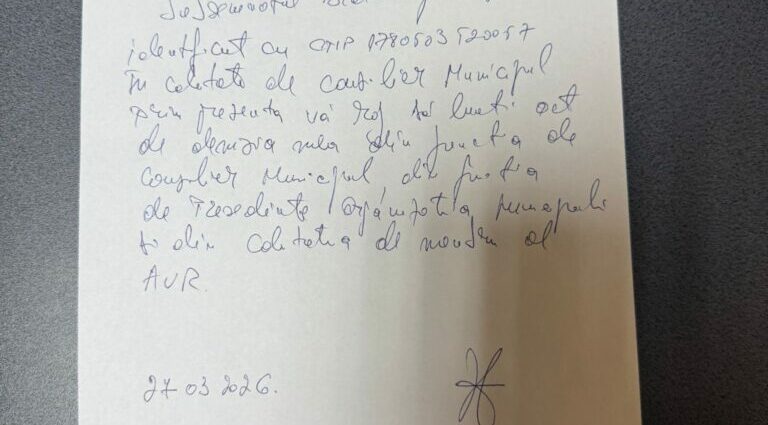 Subsemnatul
identificat cu CNP 1780503520057
în calitate de consilier Municipal
prin prezenta vă rog să luați act
de demisia mea din funcția de
Consilier Municipal, din funcția
de Președinte Organizația Municipală
și din calitatea de membru al
AUR.
27 03 2026.